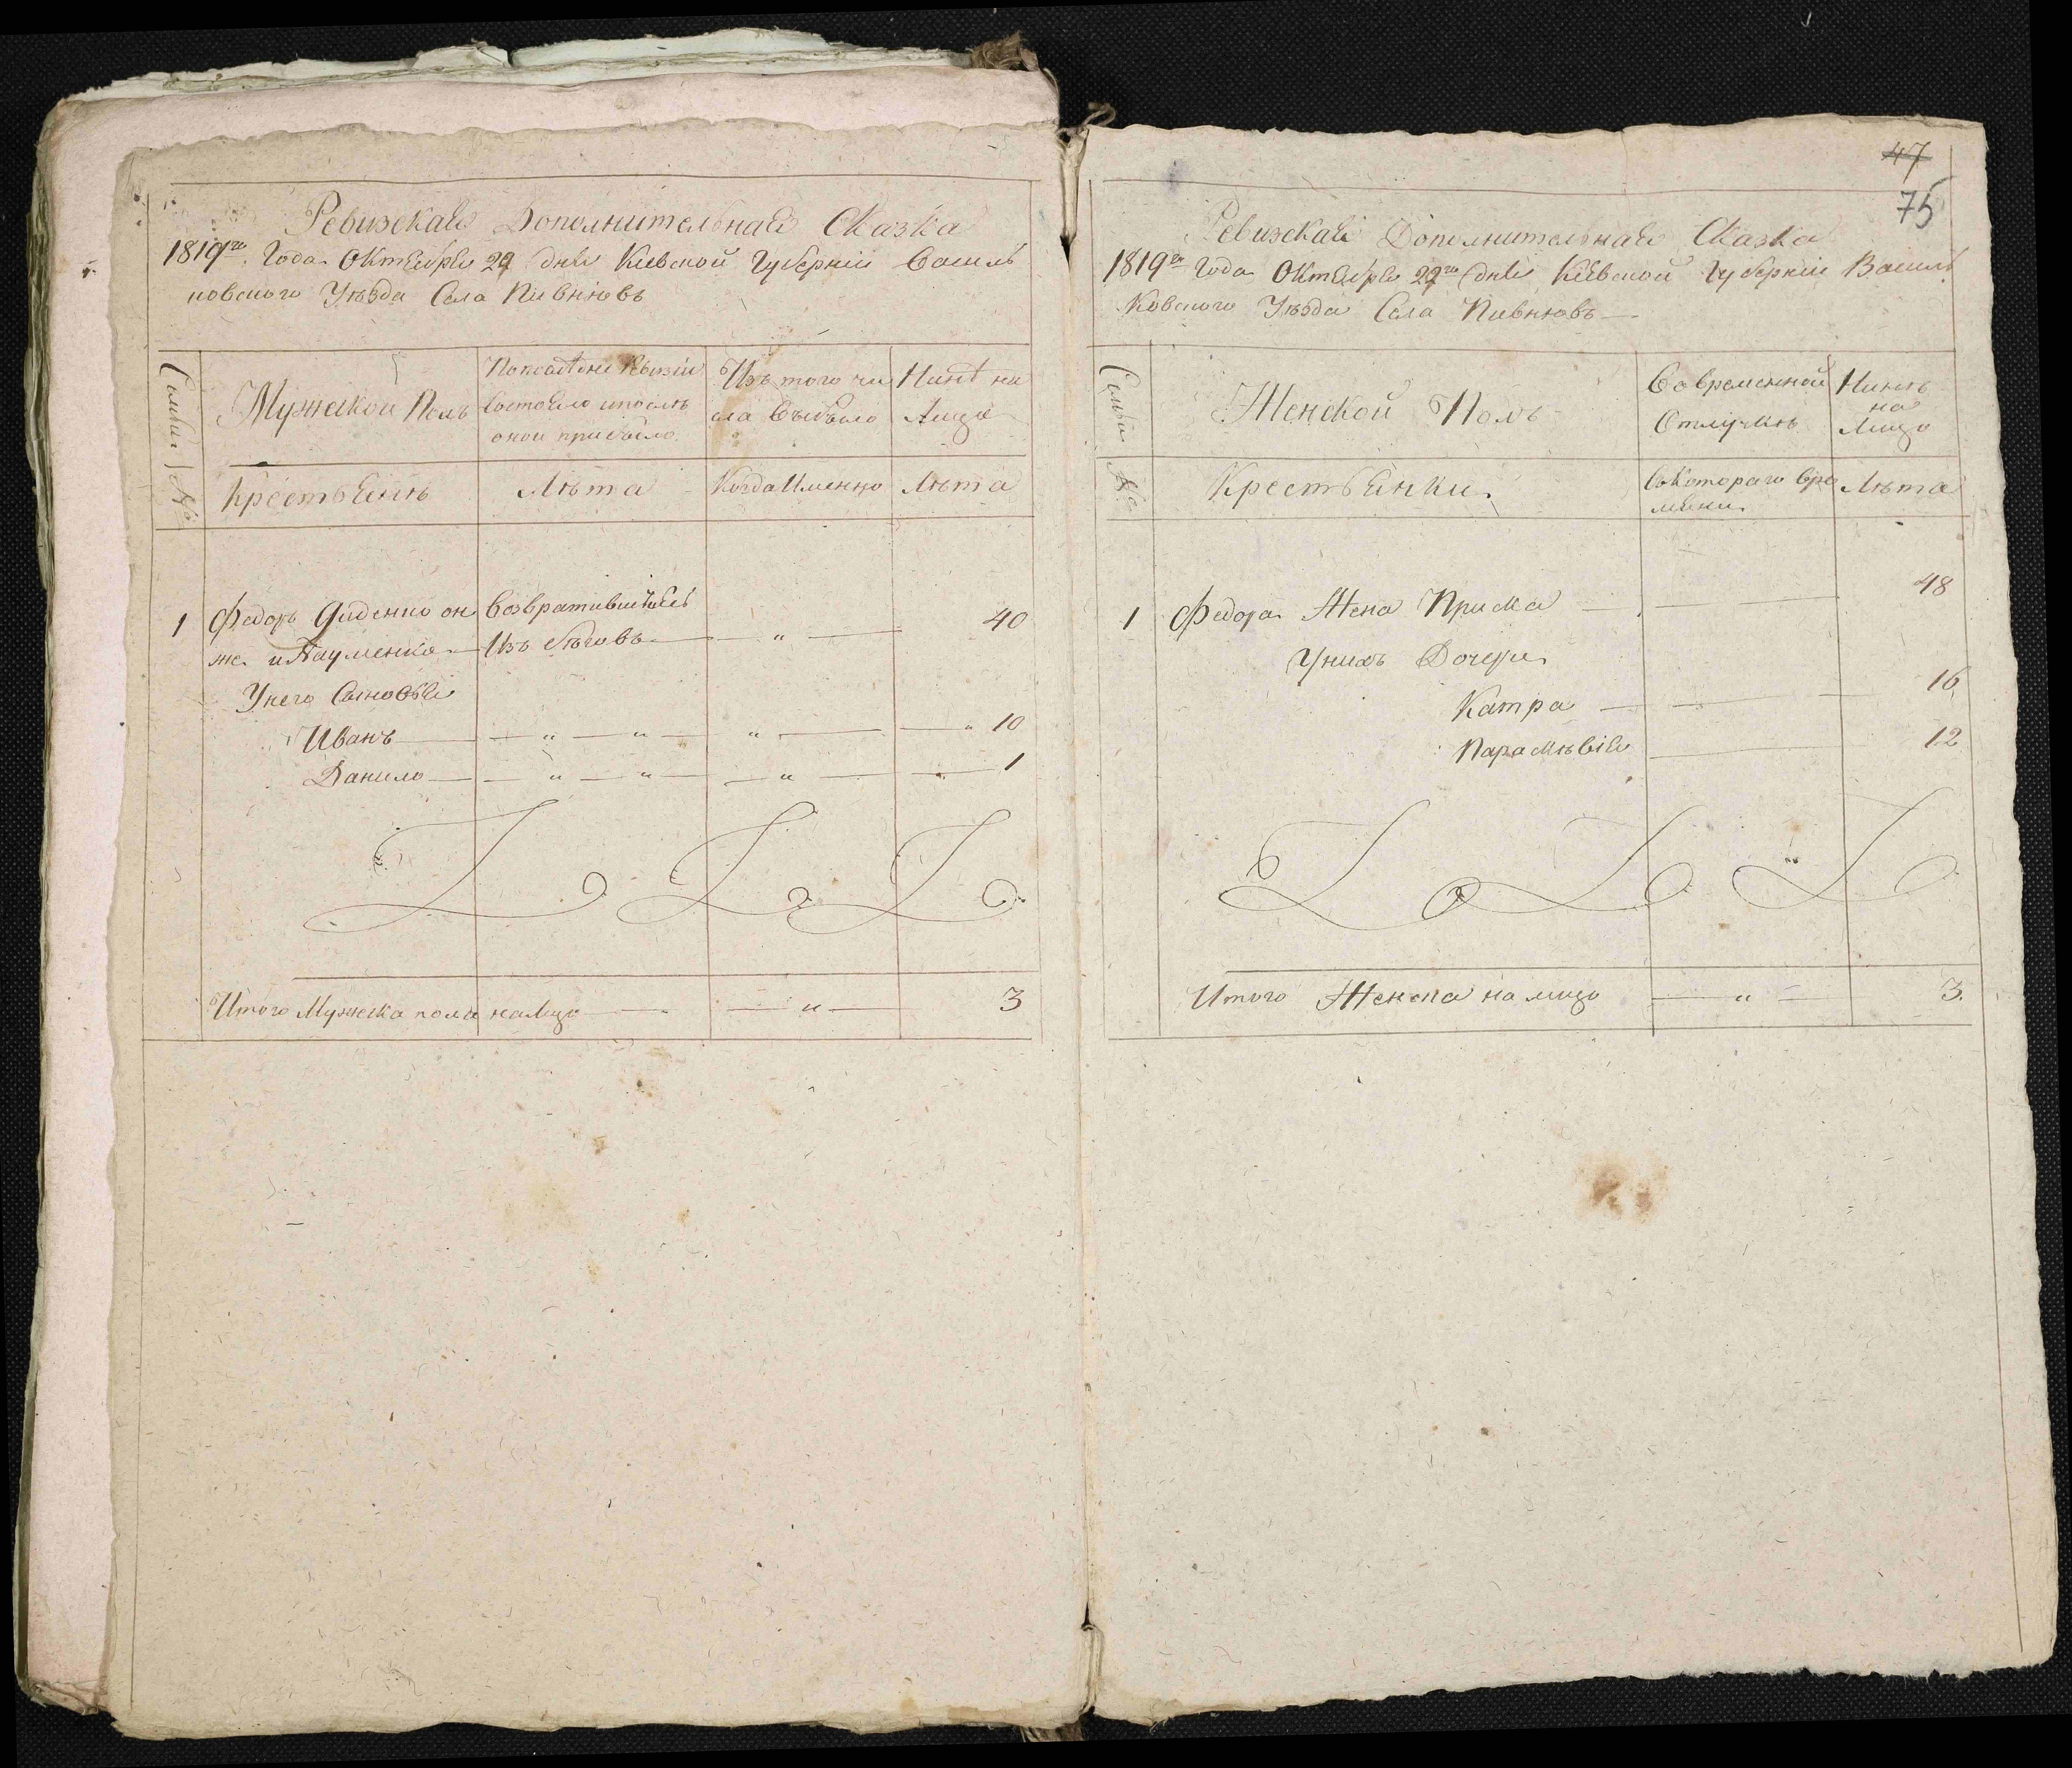 Ревизская Дополнительная Сказка
1819го Года Октября 29 дня Киевской Губерніи Василь
ковского Уѣзда Села Пивнювъ
Семьи №
Мужеской Полъ
По последней Ревизіи
состояло и послѣ
оной прибыло
Изъ того чи
сла выбыло
Нинѣ на
лицо
Крестьянѣ
Лѣта
Когда Именно
Лѣта
1 Федоръ Диденко он Возвратившійся 40
же и Науменко Изъ бѣговъ — " —
У него Сыновья
Иванъ — " — " — " — " 10
Данило — " — " — " — 1
Итого Мужеска пола налицо — " — 3
47
75
Ревизская Дополнительная Сказка
1819го Года Октября 29го дня Кіевской Губерніи Василь
Ковского Уѣзда Села Пивнювъ
Семьи №
Женской Полъ
Во временной
Отлучкѣ
Нинѣ
на
Лицо
Крестьянки
Съ Котораго вре
мени
Лѣта
1 Федора Жена Приска 48
У нихъ Дочери
Катра 16
Парасковія 12
Итого Женска на лицо — " — 3.